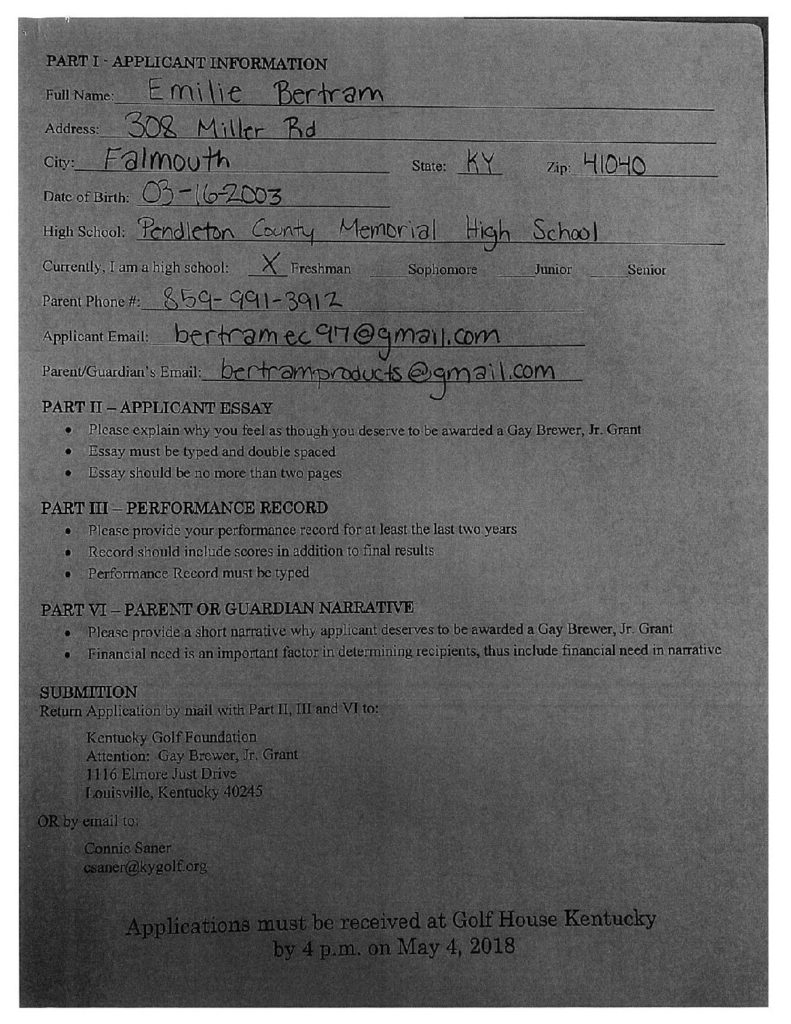 PART I - APPLICANT INFORMATION
Full Name: Emilie Bertram
Address: 308 Miller Rd
City: Falmouth State: KY Zip: 41040
Date of Birth: 03-16-2003
High School: Pendleton County Memorial High School
Currently, I am a high school: X Freshman Sophomore Junior Senior
Parent Phone #: 859-991-3912
Applicant Email: bertramec97@gmail.com
Parent/Guardian's Email: bertramproducts@gmail.com
PART II – APPLICANT ESSAY
• Please explain why you feel as though you deserve to be awarded a Gay Brewer, Jr. Grant
• Essay must be typed and double spaced
• Essay should be no more than two pages
PART III – PERFORMANCE RECORD
• Please provide your performance record for at least the last two years
• Record should include scores in addition to final results
• Performance Record must be typed
PART VI – PARENT OR GUARDIAN NARRATIVE
• Please provide a short narrative why applicant deserves to be awarded a Gay Brewer, Jr. Grant
• Financial need is an important factor in determining recipients, thus include financial need in narrative
SUBMITION
Return Application by mail with Part II, III and VI to:
Kentucky Golf Foundation
Attention: Gay Brewer, Jr. Grant
1116 Elmore Just Drive
Louisville, Kentucky 40245
OR by email to:
Connie Saner
csaner@kygolf.org
Applications must be received at Golf House Kentucky
by 4 p.m. on May 4, 2018